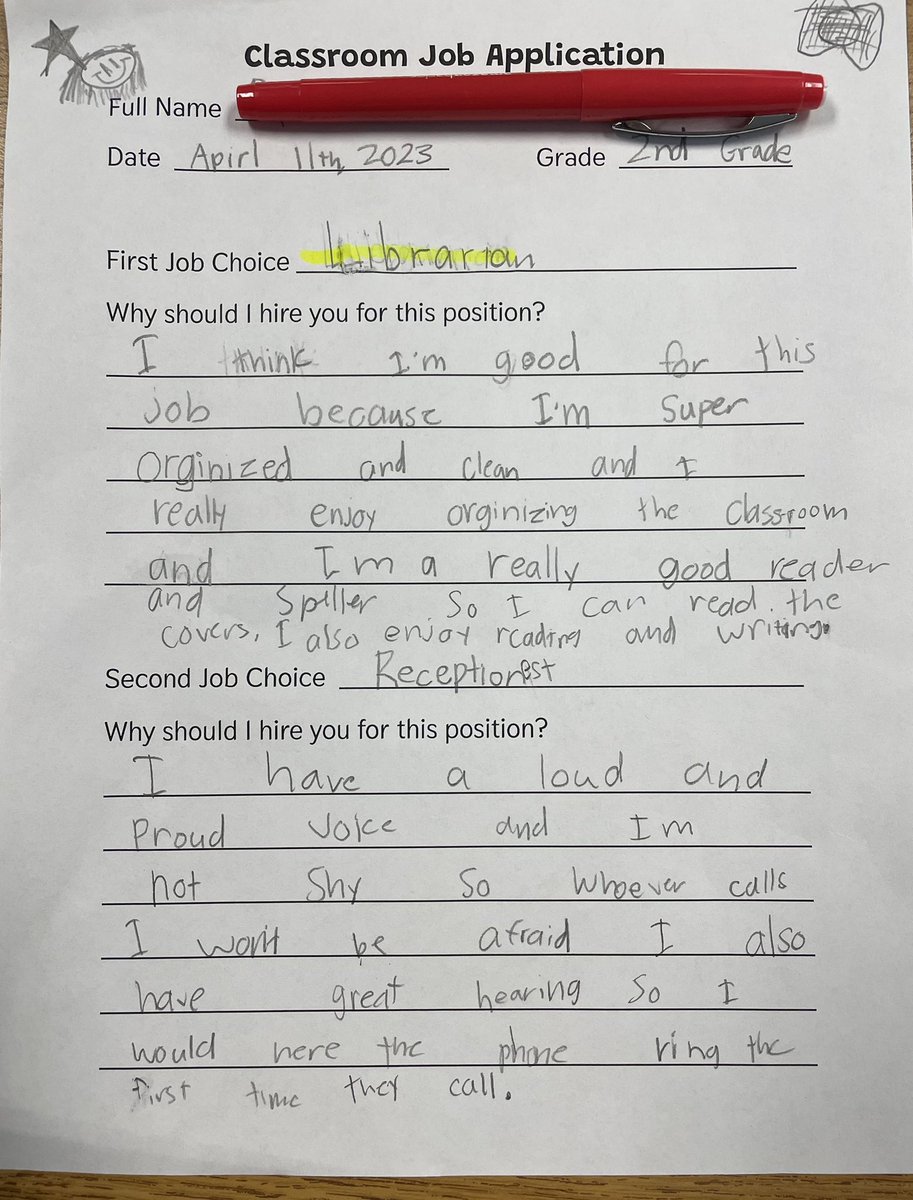 Classroom Job Application
Full Name
Date Apirl 11th, 2023 Grade 2nd Grade
First Job Choice Librarian
Why should I hire you for this position?
I think I'm good for this
job because I'm super
orginized and clean and I
really enjoy orginizing the classroom
and I'm a really good reader
and Speller So I can read the
covers, I also enjoy reading and writing.
Second Job Choice Receptionest
Why should I hire you for this position?
I have a loud and
Proud voice and I'm
not Shy So whoever calls
I won't be afraid I also
have great hearing So I
would here the phone ring the
first time they call.